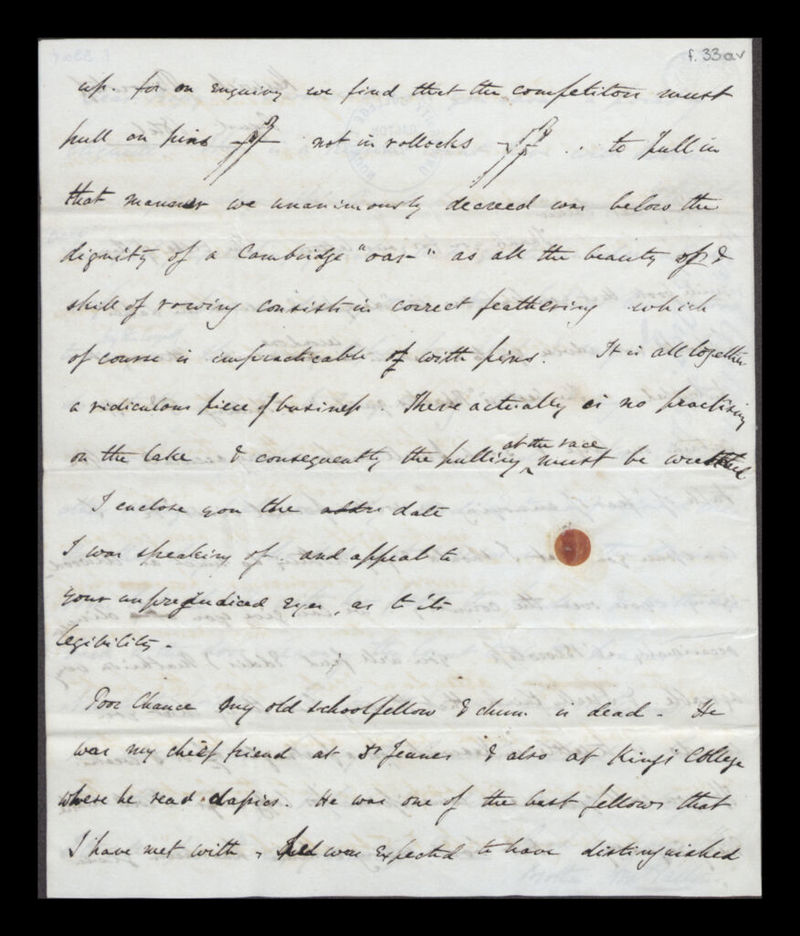 f. 33av
up. for on enquiry we find that the competitors must
pull on pins not in rollocks .. to pull in
that manner we unanimously decreed was below the
dignity of a Cambridge "oar" as all the beauty of &
skill of rowing consists in correct feathering which
of course is impracticable of with pins. It is all together
a ridiculous piece of business. There actually is no practising
on the lake & consequently the pulling at the race must be wretched
I enclose you the date
I was speaking of. and appeal to
your unprejudiced eyes, as to its
legibility.
Poor Chance my old schoolfellow & chum is dead. He
was my chief friend at St Jeunes & also at King's College
where he read classics. He was one of the best fellows that
I have met with, & was expected to have distinguished